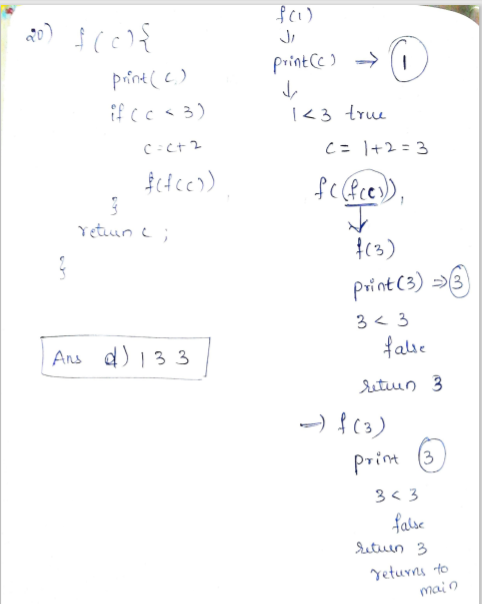 20) f(c){
print(c)
if(c < 3)
c=c+2
f(f(c))
}
return c ;
}
Ans d) 1 3 3
f(1)
↓
print(c) → 1
↓
1<3 true
c = 1+2 = 3
f(f(c)),
↓
f(3)
print(3) ⇒ 3
3 < 3
false
return 3
→ f(3)
print 3
3 < 3
false
return 3
returns to
main